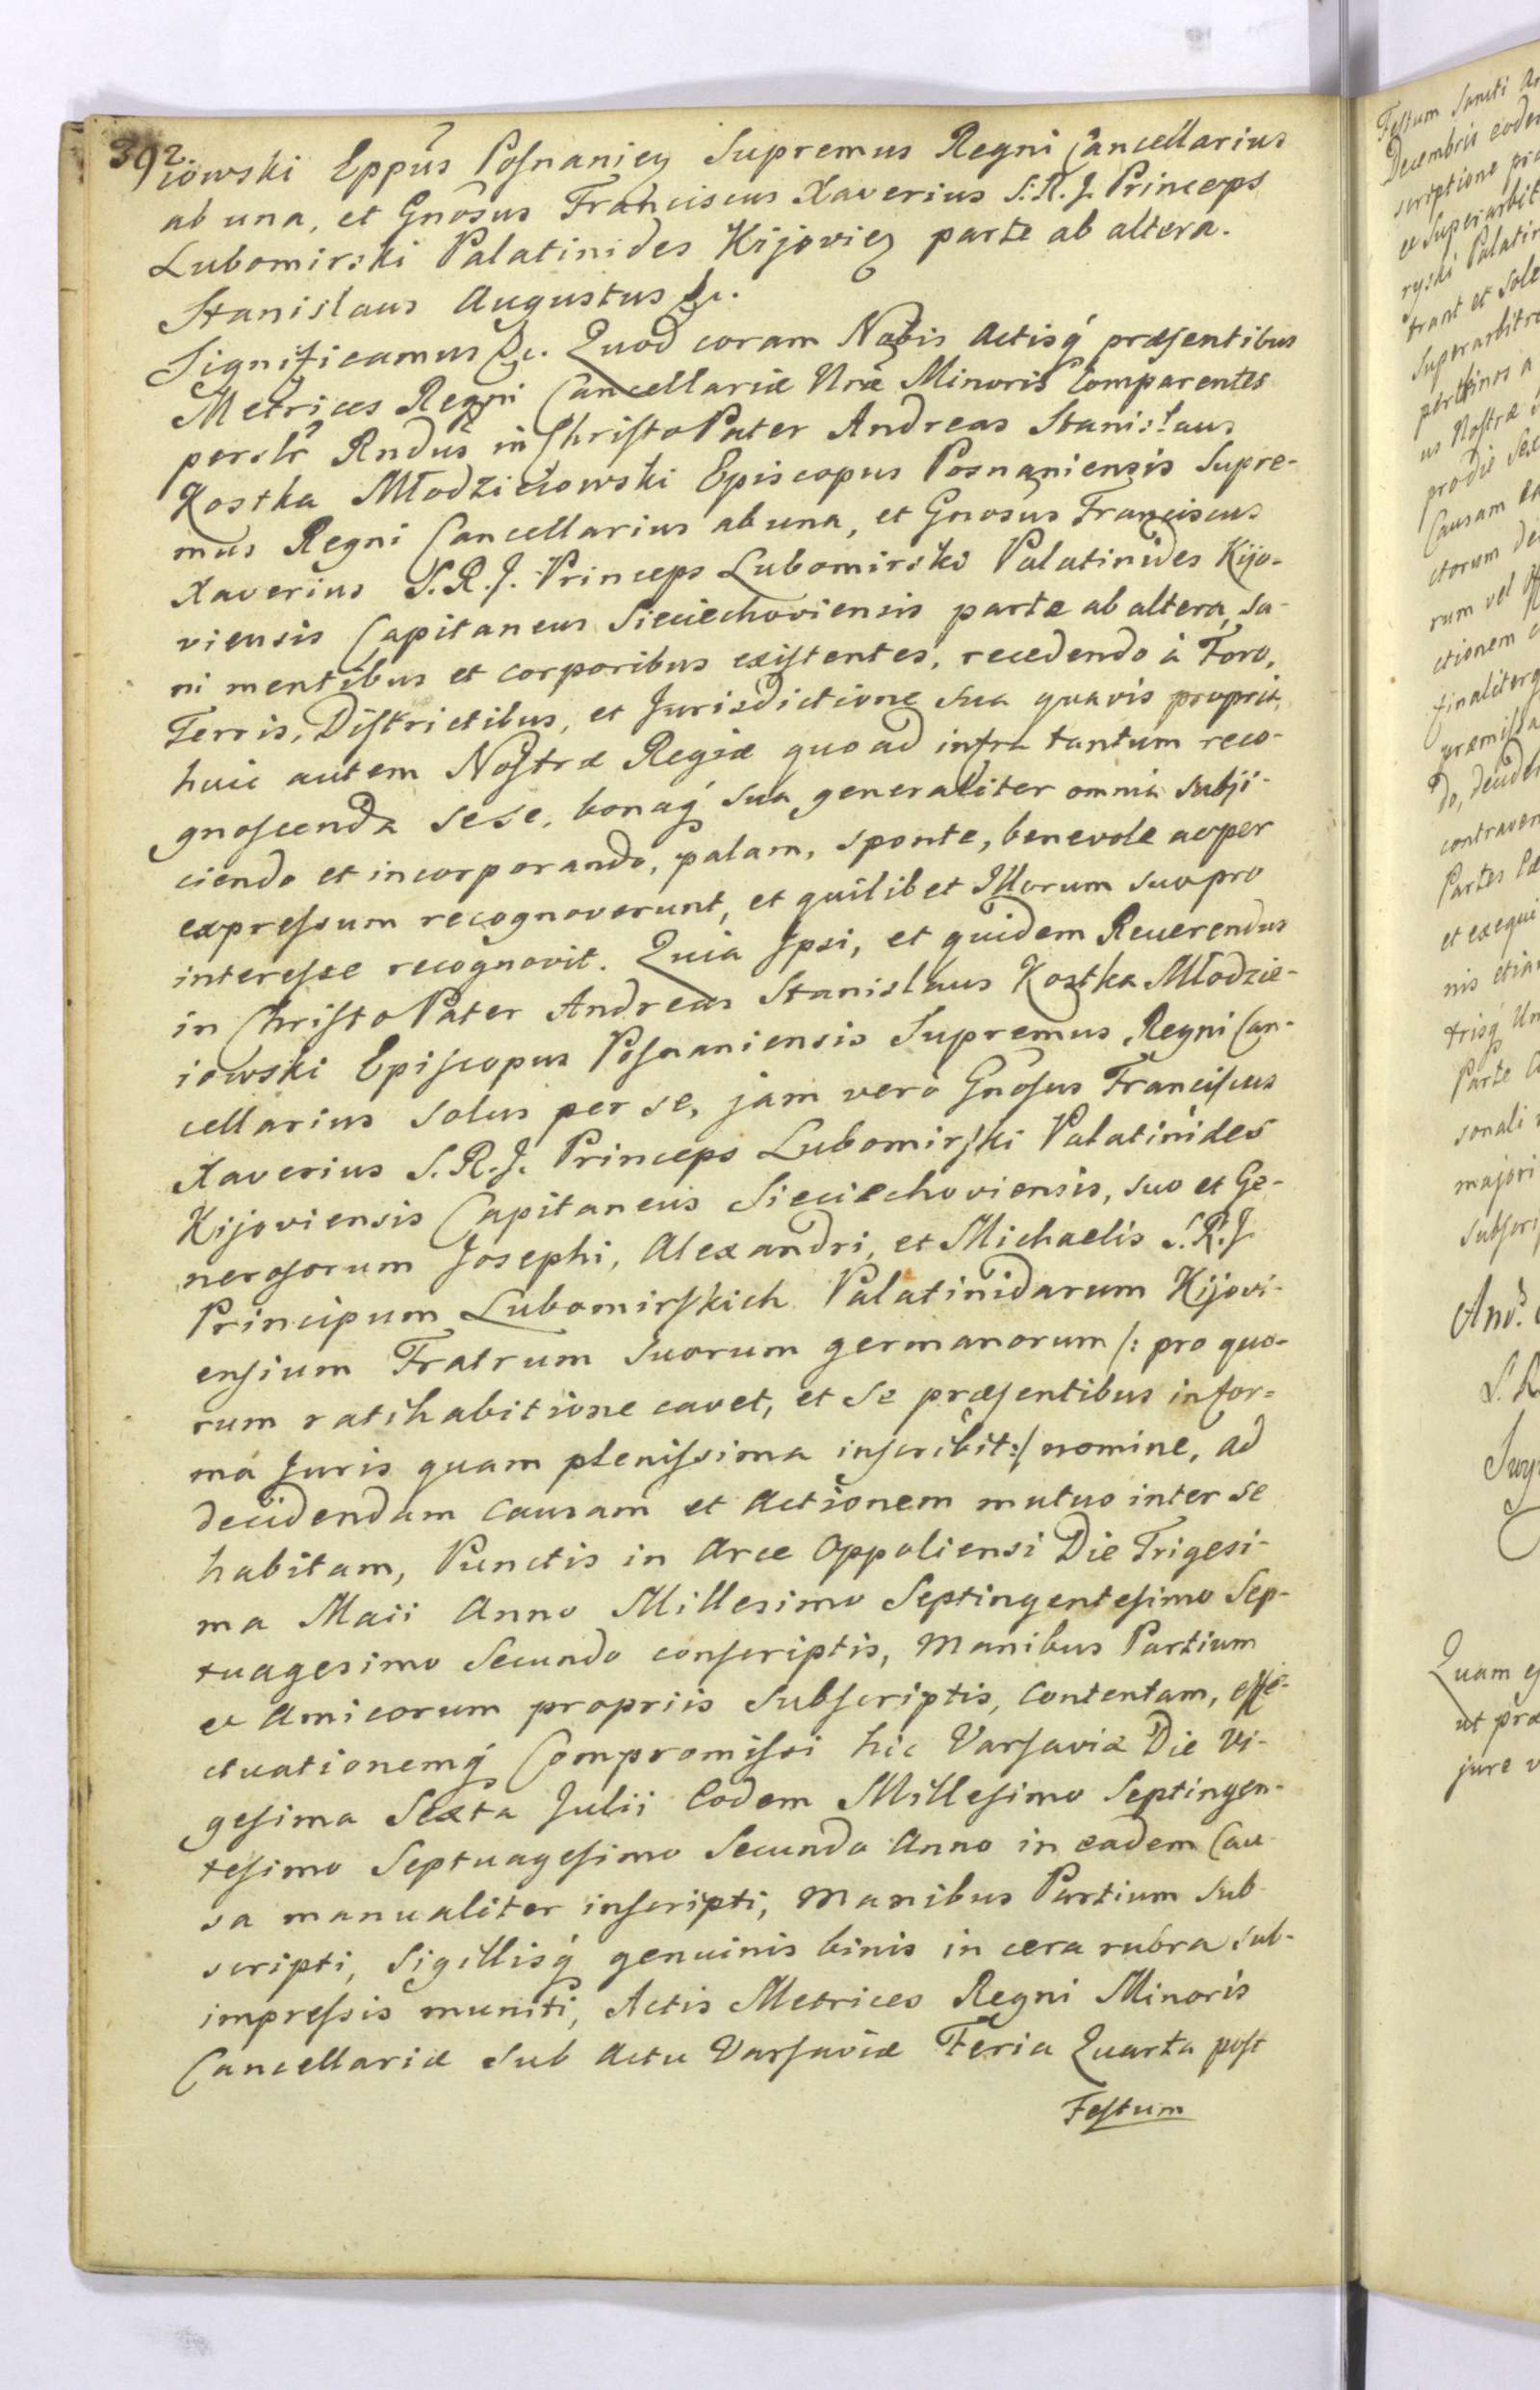 392.
iowski Eppūs Posnanień Supremus Regni Cancellarius
ab una, et Gnosus Franciscus Xaverius S. R. J. Princeps
Lubomirski Palatinides Kijovień parte ab altera.
Stanislaus Augustus &c.
Significamus &c. Quod coram Nobis Actisq́ præsentibus
Metrices Regni Cancellariæ Nræ Minoris Comparentes
perslr Rndus in Christo Pater Andreas Stanislaus
Kostka Młodzieiowski Episcopus Posnaniensis Supre-
mus Regni Cancellarius ab una, et Gnosus Franciscus
Xaverius S. R. J. Princeps Lubomirski Palatinides Kijo-
viensis Capitaneus Sieciechoviensis parte ab altera, sa-
ni mentibus et corporibus existentes, recedendo à Foro,
Terris, Districtibus, et Jurisdictione sua quavis propria,
huic autem Nostræ Regiæ quo ad infra tantum reco-
gnoscenda sese, bonaq́ sua generaliter omnia subji-
ciendo et incorporando, palam, sponte, benevole ac per
expressum recognoverunt, et quilibet Illorum suo pro
interesse recognovit. Quia Ipsi, et quidem Reverendus
in Christo Pater Andreas Stanislaus Kostka Młodzie-
iowski Episcopus Posnaniensis Supremus Regni Can-
cellarius solus per se, jam verò Gnosus Franciscus
Xaverius S. R. J. Princeps Lubomirski Palatinides
Kijoviensis Capitaneus Sieciechoviensis, suo et Ge-
nerosorum Josephi, Alexandri, et Michaelis S. R. J.
Principum Lubomirskich Palatinidarum Kijovi-
ensium Fratrum suorum germanorum /: pro quo-
rum ratihabitione cavet, et se præsentibus in for-
ma Juris quam plenissima inscribit :/ nomine, ad
decidendam Causam et Actionem mutuo inter se
habitam, Punctis in Arce Oppoliensi Die Trigesi-
ma Maii Anno Millesimo Septingentesimo Sep-
tuagesimo Secundo conscriptis, manibus Partium
et Amicorum propriis subscriptis, contentam, effe-
ctuationemq́ Compromissi hic Varsaviæ Die Vi-
gesima Sexta Julii Eodem Millesimo Septingen-
tesimo Septuagesimo Secundo Anno in eadem Cau-
sa manualiter inscripti, manibus Partium sub-
scripti, Sigillisq́ genuinis binis in cera rubra sub-
impressis muniti, Actis Metrices Regni Minoris
Cancellariæ sub actu Varsaviæ Feria Quarta post
Festum
Festum Sancti
Decembris
scriptione
et Superarbit
ryski Palatin
trant et sole
Superarbitr
us Nostræ
prodie
Causam
ctorum
rum vel
ctionem
finaliter
præmissa
do,
contraven
Partes
et exequi
nis etia
Parte
sonali
majori
subscri
Quam
ut præ
jure